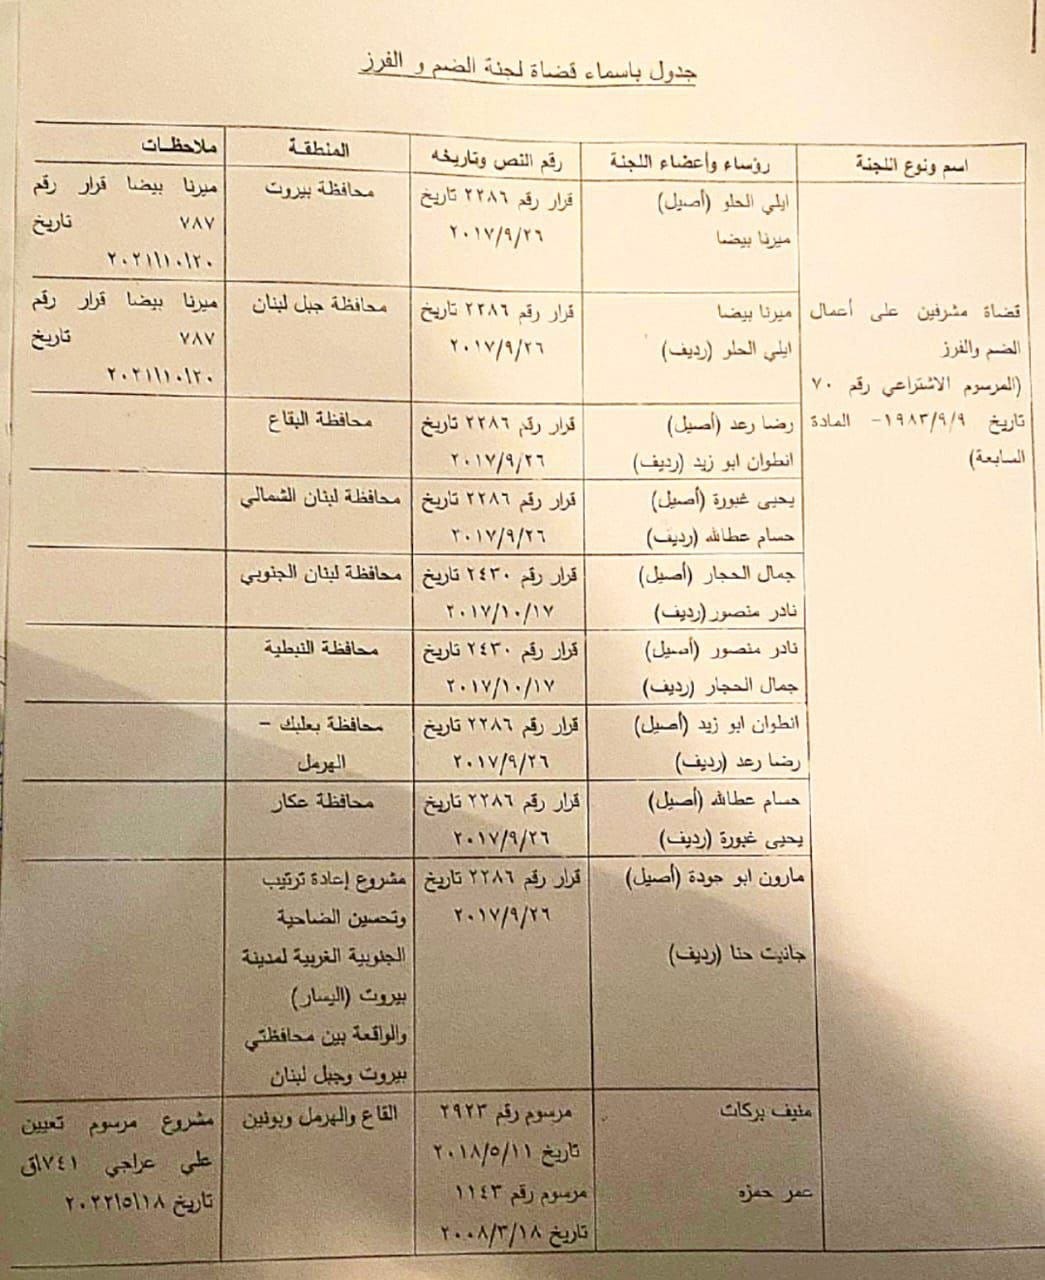 جدول باسماء قضاة لجنة الضم و الفرز
اسم ونوع اللجنة | رؤساء وأعضاء اللجنة | رقم النص وتاريخه | المنطقة | ملاحظات
قضاة مشرفين على أعمال
الضم والفرز
(المرسوم الاشتراعي رقم ٧٠
تاريخ ١٩٨٣/٩/٩- المادة
السابعة)
ايلي الحلو (أصيل) | قرار رقم ٢٢٨٦ تاريخ | محافظة بيروت | ميرنا بيضا قرار رقم
ميرنا بيضا | ٢٠١٧/٩/٢٦ | ٧٨٧ تاريخ
٢٠٢١\١٠\٢٠
ميرنا بيضا | قرار رقم ٢٢٨٦ تاريخ | محافظة جبل لبنان | ميرنا بيضا قرار رقم
ايلي الحلو (رديف) | ٢٠١٧/٩/٢٦ | ٧٨٧ تاريخ
٢٠٢١\١٠\٢٠
رضا رعد (أصيل) | قرار رقم ٢٢٨٦ تاريخ | محافظة البقاع
انطوان ابو زيد (رديف) | ٢٠١٧/٩/٢٦
يحيى غبورة (أصيل) | قرار رقم ٢٢٨٦ تاريخ | محافظة لبنان الشمالي
حسام عطالله (رديف) | ٢٠١٧/٩/٢٦
جمال الحجار (أصيل) | قرار رقم ٢٤٣٠ تاريخ | محافظة لبنان الجنوبي
نادر منصور (رديف) | ٢٠١٧/١٠/١٧
نادر منصور (أصيل) | قرار رقم ٢٤٣٠ تاريخ | محافظة النبطية
جمال الحجار (رديف) | ٢٠١٧/١٠/١٧
انطوان ابو زيد (أصيل) | قرار رقم ٢٢٨٦ تاريخ | محافظة بعلبك –
رضا رعد (رديف) | ٢٠١٧/٩/٢٦ | الهرمل
حسام عطالله (أصيل) | قرار رقم ٢٢٨٦ تاريخ | محافظة عكار
يحيى غبورة (رديف) | ٢٠١٧/٩/٢٦
مارون ابو جودة (أصيل) | قرار رقم ٢٢٨٦ تاريخ | مشروع إعادة ترتيب
٢٠١٧/٩/٢٦ | وتحسين الضاحية
جانيت حنا (رديف) | الجنوبية الغربية لمدينة
بيروت (اليسار)
والواقعة بين محافظتي
بيروت وجبل لبنان
منيف بركات | مرسوم رقم ٢٩٢٣ | القاع والهرمل ويونين | مشروع مرسوم تعيين
تاريخ ٢٠١٨/٥/١١ | علي عراجي ٧٤١\ق
عمر حمزه | مرسوم رقم ١١٤٣ | تاريخ ٢٠٢٢\٥\١٨
تاريخ ٢٠٠٨/٣/١٨